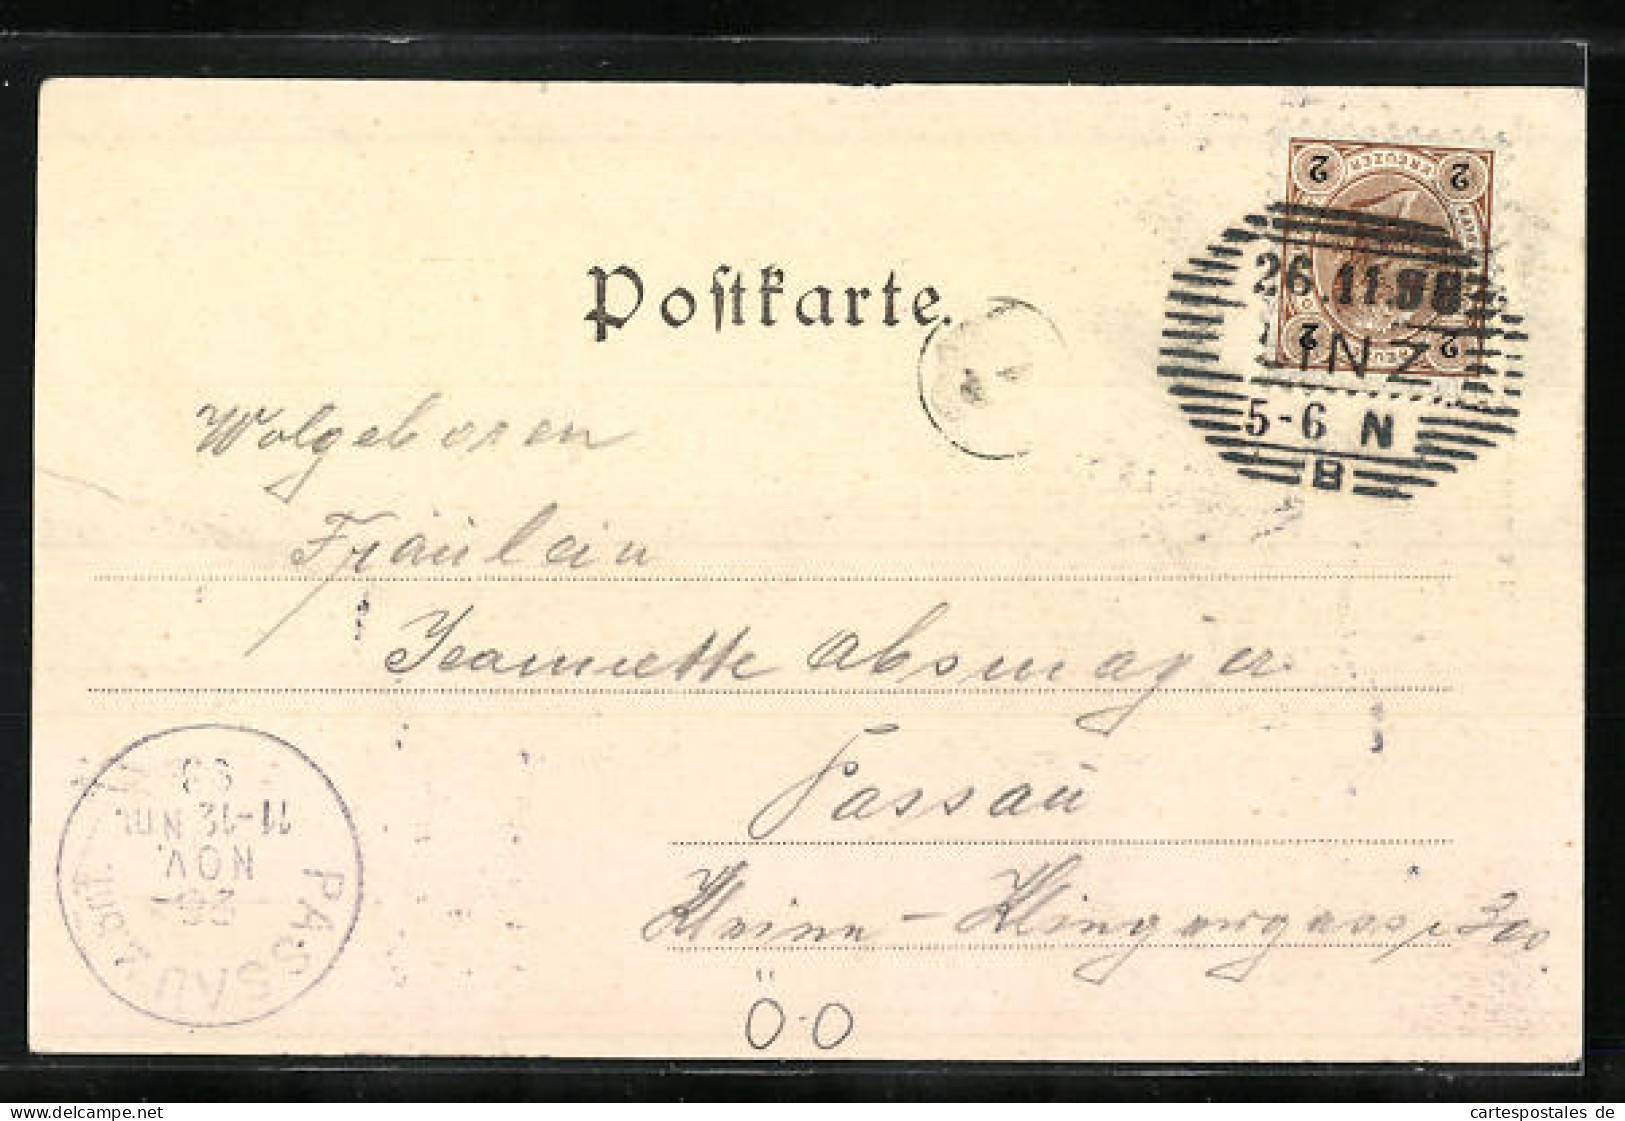 2 KREUZER 2
26.11.98
LINZ
2 2
5-6 N
B
Postkarte.
Wolgeboren
Fräulein
Jeannette Absmayer
Passau
Kleine-Klingergasse 300
PASSAU 2. Bhf.
26
NOV.
11-12 Nm.
98
Ö-O
delcampe.net
cartespostales de